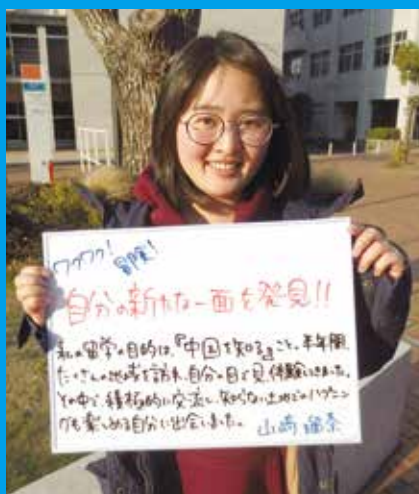 ワクワク！
冒険！
自分の新たな一面を発見!!
私の留学の目的は、『中国を知る』こと。半年間、
たくさんの地域を訪れ、自分の目で見、体験しました。
その中で、積極的に交流し、知らない土地でのハプニン
グも楽しめる自分に出会いました。
山崎 瑠奈